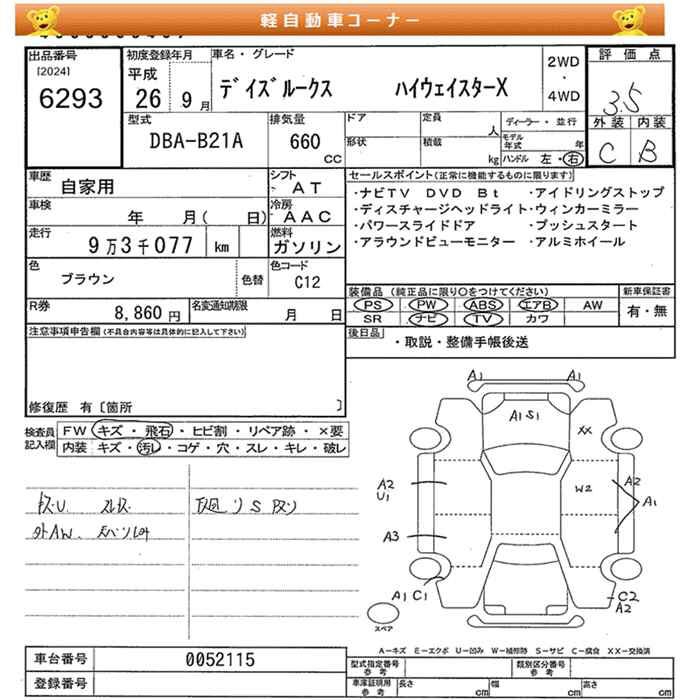 軽自動車コーナー
出品番号
[2024]
6293
初度登録年月
平成
26年 9月
車名・グレード
デイズルークス ハイウェイスターX
2WD
・
4WD
評価点
3.5
外装 内装
C B
型式
DBA-B21A
排気量
660
CC
ドア
定員
人
形状
積載
kg
ディーラー・並行
モデル年式
年
ハンドル 左・右
車歴
自家用
シフト
AT
車検
年 月( 日)
冷房
AAC
走行
9万3千077 km
燃料
ガソリン
色
ブラウン
色替
色コード
C12
R券
8,860円
名変通知期限
月 日
セールスポイント(正常に機能するものに限ります)
・ナビTV DVD Bt ・アイドリングストップ
・ディスチャージヘッドライト・ウィンカーミラー
・パワースライドドア ・プッシュスタート
・アラウンドビューモニター ・アルミホイール
装備品(純正品に限り○をつけてください)
PS PW ABS エアB AW
SR ナビ TV カワ
新車保証書
有・無
後日品
・取説・整備手帳後送
注意事項申告欄(不具合内容等は具体的に記入して下さい)
修復歴 有〔箇所 〕
検査員記入欄
FW キズ・飛石・ヒビ割・リペア跡・×要
内装 キズ・汚レ・コゲ・穴・スレ・キレ・破レ
A1
A1
A1S1
XX
A2
U1
W2
A2
A1
A3
A1 C1
C2
A2
スペア
A-キズ E-エクボ U-凹み W-補修跡 S-サビ C-腐食 XX-交換済
車台番号
0052115
登録番号
型式指定番号
参考
類別区分番号
参考
車庫証明用
参考
長さ cm
幅 cm
高さ cm